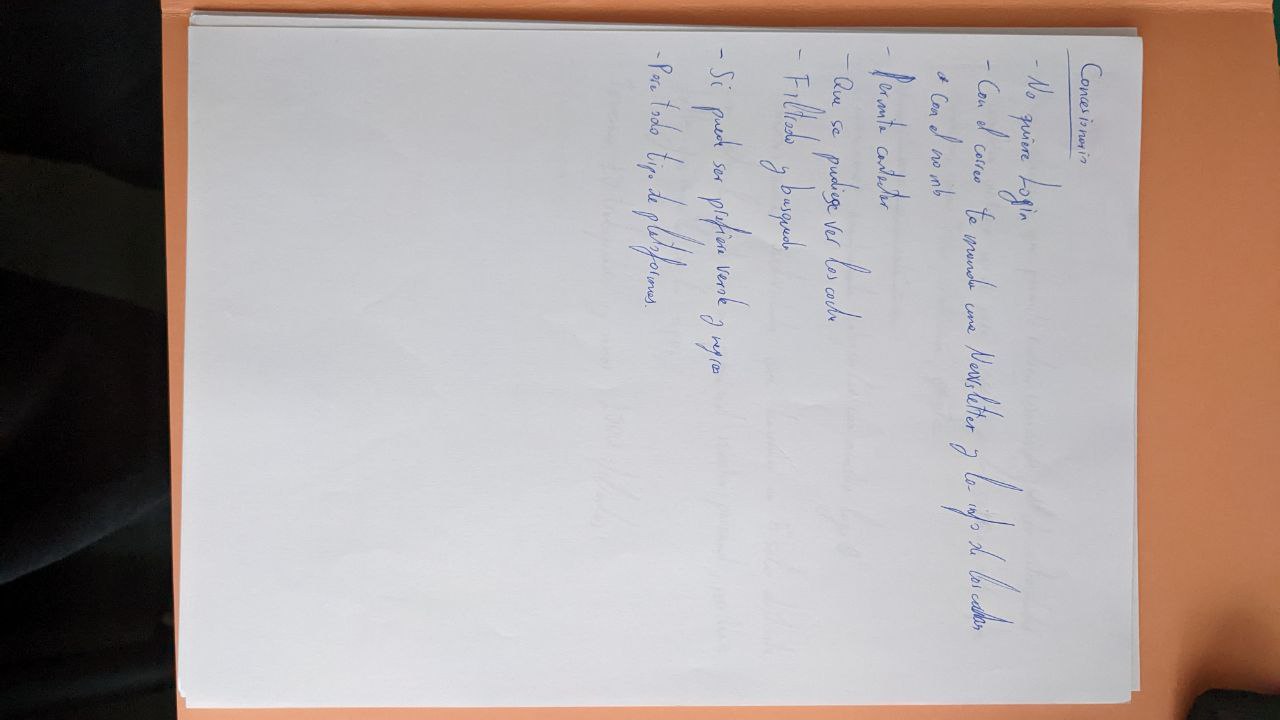 Concesionario
- No quiere Login
- Con el correo te manda una Newsletter y la info de los coches
* Con el nomb
- Permita contactar
- Que se pudiese ver los coche
- Filtrado y busqueda
- Si puede ser prefiere verde y negro
- Para todo tipo de plataformas.